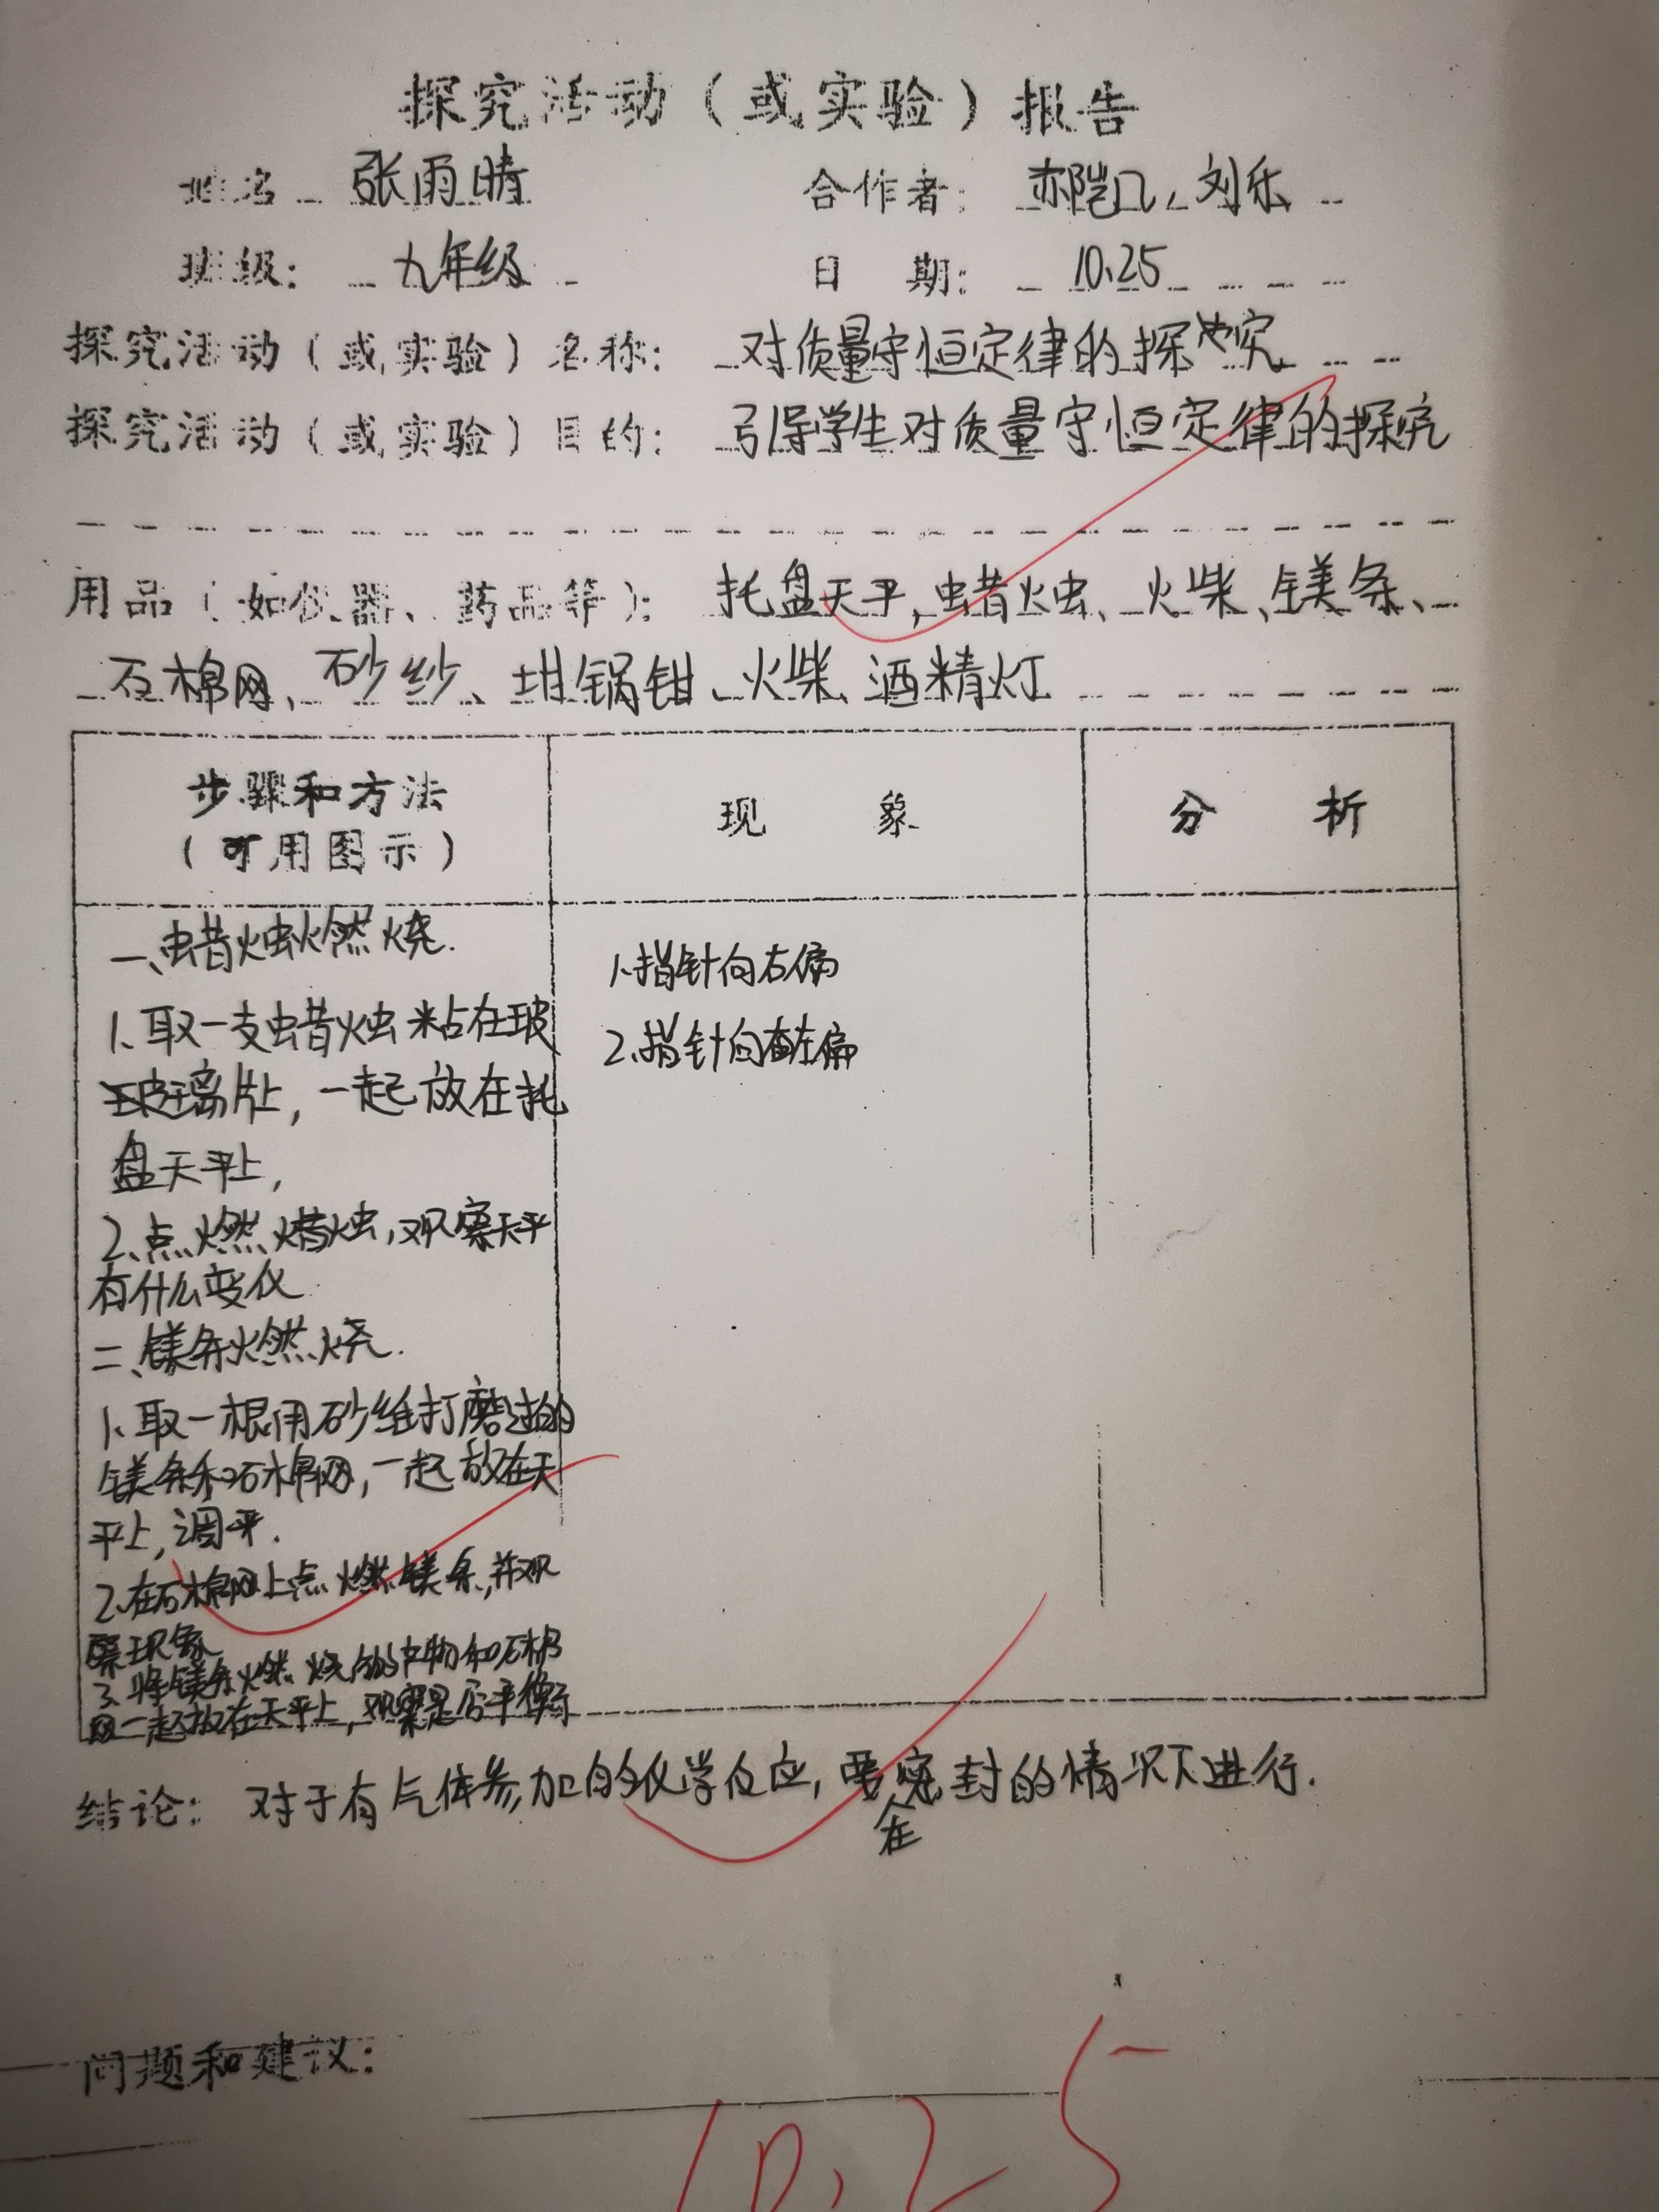 探究活动（或实验）报告
姓名 张雨晴 合作者： 郝陀, 刘乐
班级： 九年级 日 期： 10.25
探究活动（或实验）名称： 对质量守恒定律的探究
探究活动（或实验）目的： 引导学生对质量守恒定律的探究
用品（如仪器、药品等）： 托盘天平, 蜡烛、火柴、镁条、
石棉网、砂纱、坩锅钳、火柴、酒精灯
步骤和方法
（可用图示）
现 象
分 析
一、蜡烛燃烧.
1、取一支蜡烛粘在玻
玻璃片上, 一起放在托
盘天平上,
2、点燃蜡烛, 观察天平
有什么变化
二、镁条燃烧.
1、取一根用砂纸打磨过的
镁条和石棉网, 一起放在天
平上, 调平.
2、在石棉网上点燃镁条, 并观
察现象
3、将镁条燃烧的产物和石棉
网一起放在天平上, 观察是否平衡
1、指针向右偏
2、指针向左偏
结论： 对于有气体参加的化学反应, 要在密封的情况下进行.
问题和建议：
10.25